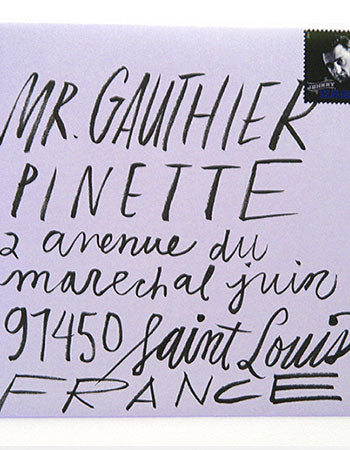 MR. GAUTHIER
PINETTE
2 avenue du
marechal juin
97450 Saint Louis
FRANCE
JOHNNY